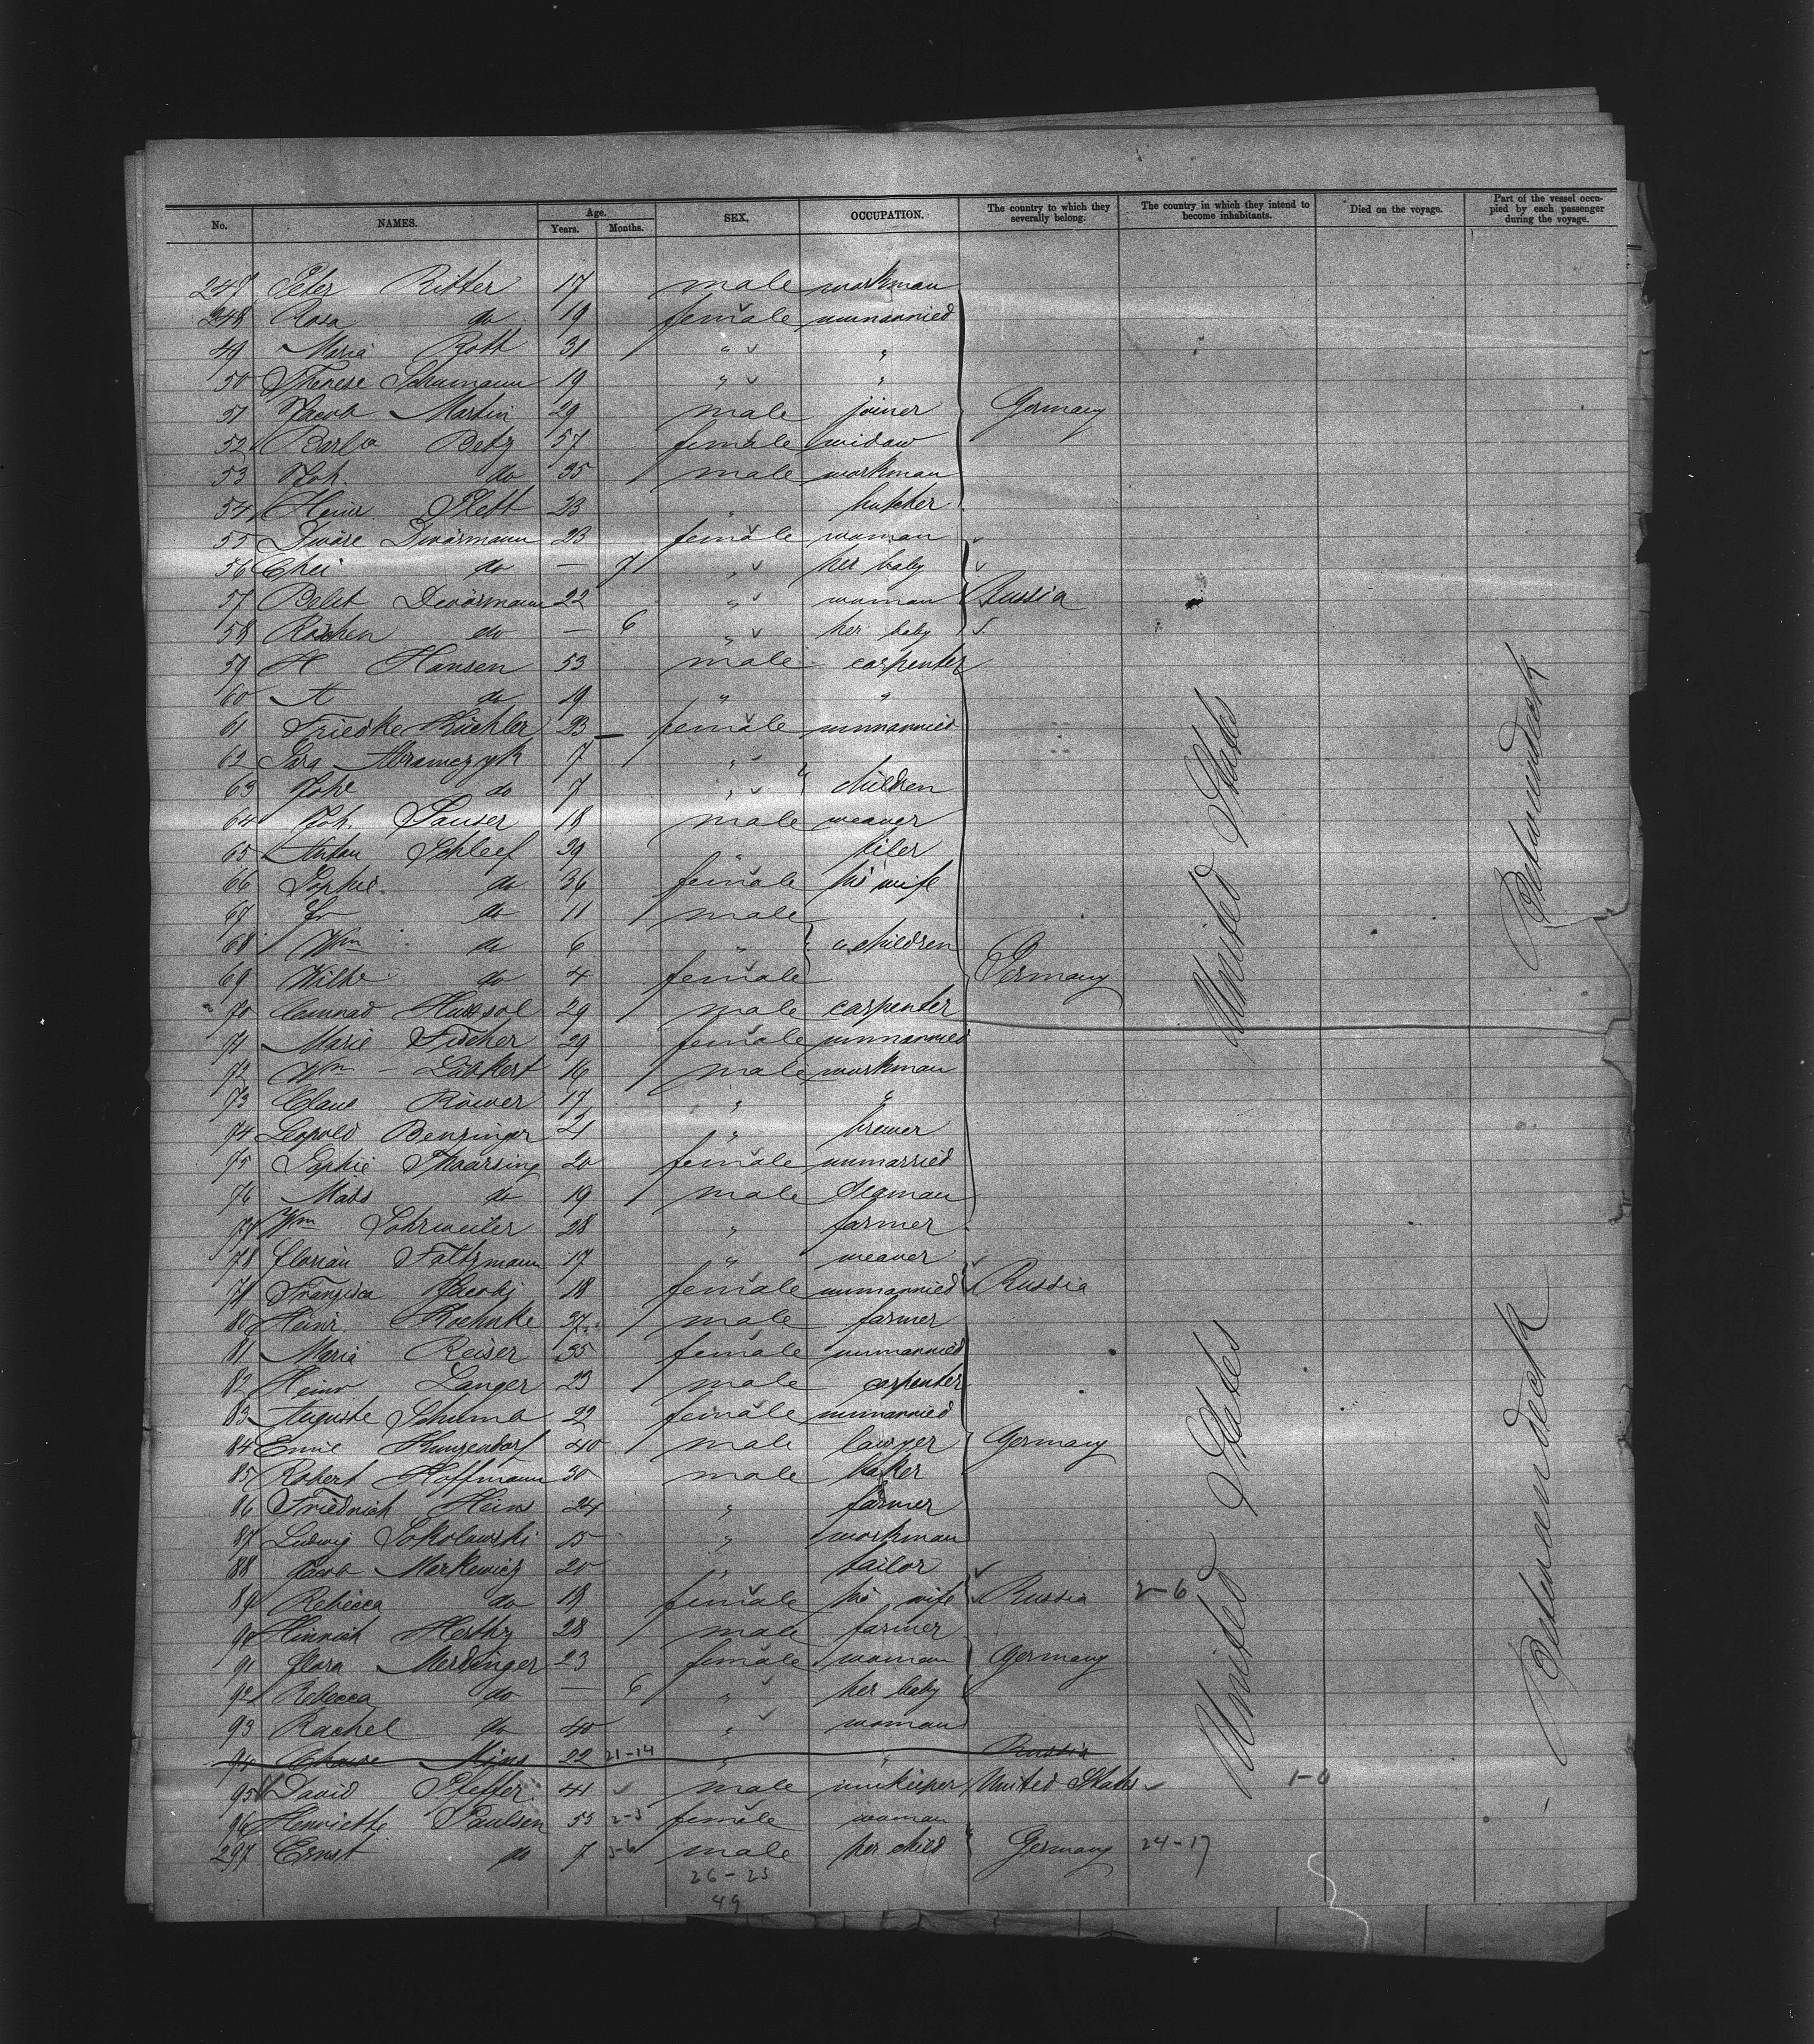 No. NAMES. Age. Years. Months. SEX. OCCUPATION. The country to which they severally belong. The country in which they intend to become inhabitants. Died on the voyage. Part of the vessel occupied by each passenger during the voyage.
247 Peter Ritter 17 male workman
248 Rosa do 19 female unmarried
49 Maria Rott 31 " "
50 Therese Schumann 19 " "
51 Jacob Martin 29 male joiner Germany
52 Barba Betz 57 female widow
53 Joh. do 35 male workman
54 Heinr Plett 23 " butcher
55 Dwormann 23 female woman
56 Chei do — 7 " her baby
57 Dwormann 22 " woman Russia
58 Röschen do — 6 " her baby
59 H Hansen 53 male carpenter
60 A do 19 " "
61 Friedke Küchler 23 female unmarried
62 Sara Abramczyk 7 "
63 do 7 " " children
64 Joh. Sauser 18 male weaver
65 Anton Schleef 39 " tiler
66 Sophie do 36 female his wife
67 Fr do 11 male
68 Wm do 6 " " children
69 do 4 female Germany
70 Conrad 29 male carpenter
71 Marie Fischer 29 female unmarried
72 Wm Lübkert 16 male workman
73 Claus Röwer 17 " "
74 Leopold Benzinger 21 " brewer
75 Sophie Thaarsing 20 female unmarried
76 Mads do 19 male seaman
77 Wm Sohrweiler 28 " farmer
78 Florian Faltzmann 17 " weaver
79 Franzisca Jacobj 18 female unmarried Russia
80 Heinr Koehnke 27 male farmer
81 Maria Reiser 35 female unmarried
82 Heinr Langer 23 male carpenter
83 Auguste Schuma 22 female unmarried
84 Kunzendorf 40 male lawyer Germany
85 Robert Hoffmann 30 male baker
86 Friedrich Heins 24 " farmer
87 Ludwig Sokolowski 15 " workman
88 Jacob Markewicz 20 " tailor
89 Rebecca do 19 female his wife Russia 2-6
90 Hinrich Herthz 28 male farmer
91 Flora Merdinger 23 female woman Germany
92 Rebecca do — 6 " her baby
93 Rachel do 40 " woman
94 22 21-14 " " Russia
95 David Pfeffer 41 male innkeeper United States 1-0
96 Henriette Paulsen 53 2-5 female woman
297 Ernst do 7 5-6 male her child Germany 24-17
26-23
49
United States
United States
Betweendeck
Betweendeck